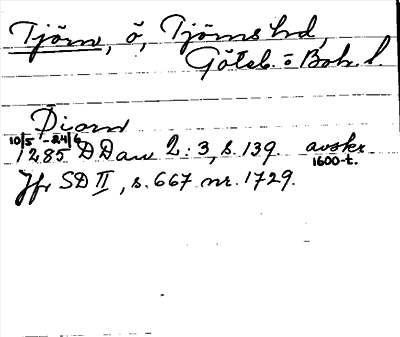 Tjörn, ö, Tjörns hd,
Göteb. o Boh. l.
Diorn
10/5 -24/6
1285 DDan 2:3, s. 139. avskr.
1600-t.
Jfr SD II, s. 667 nr. 1729.